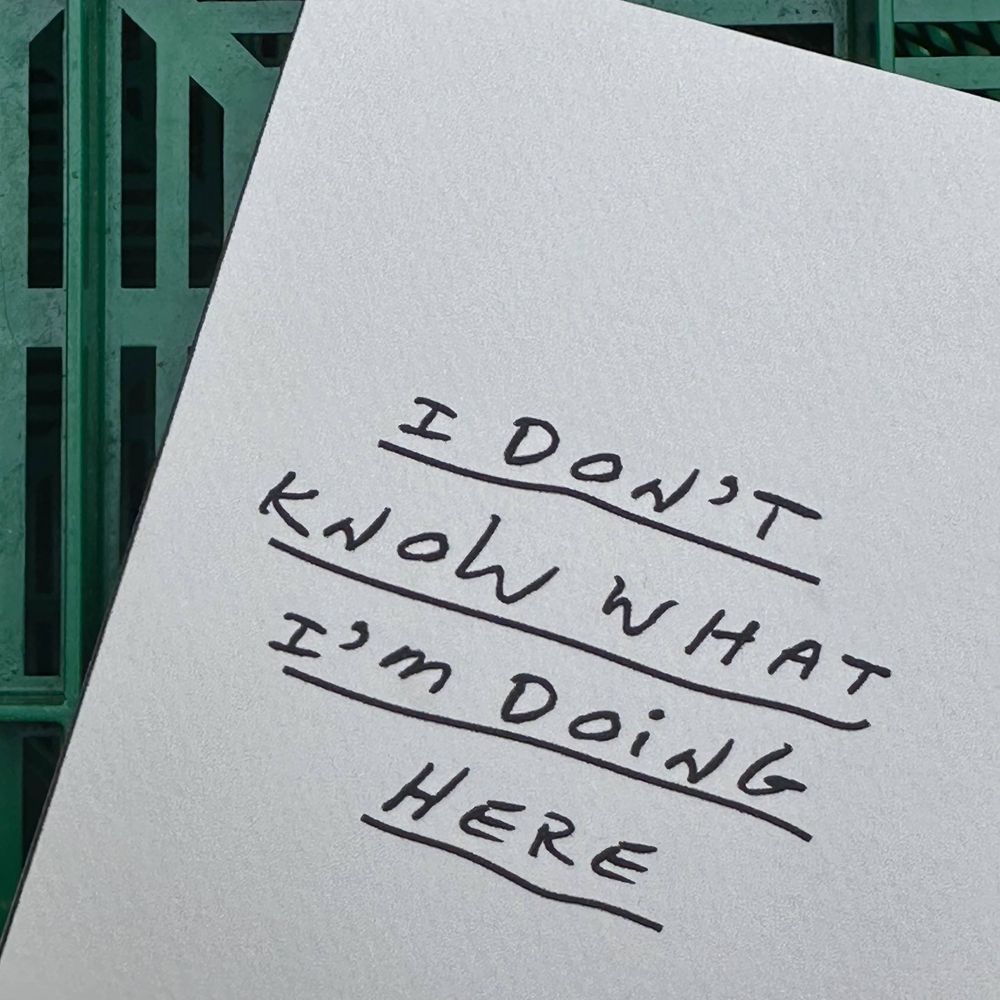 I DON'T
KNOW WHAT
I'm DOiNG
HERE